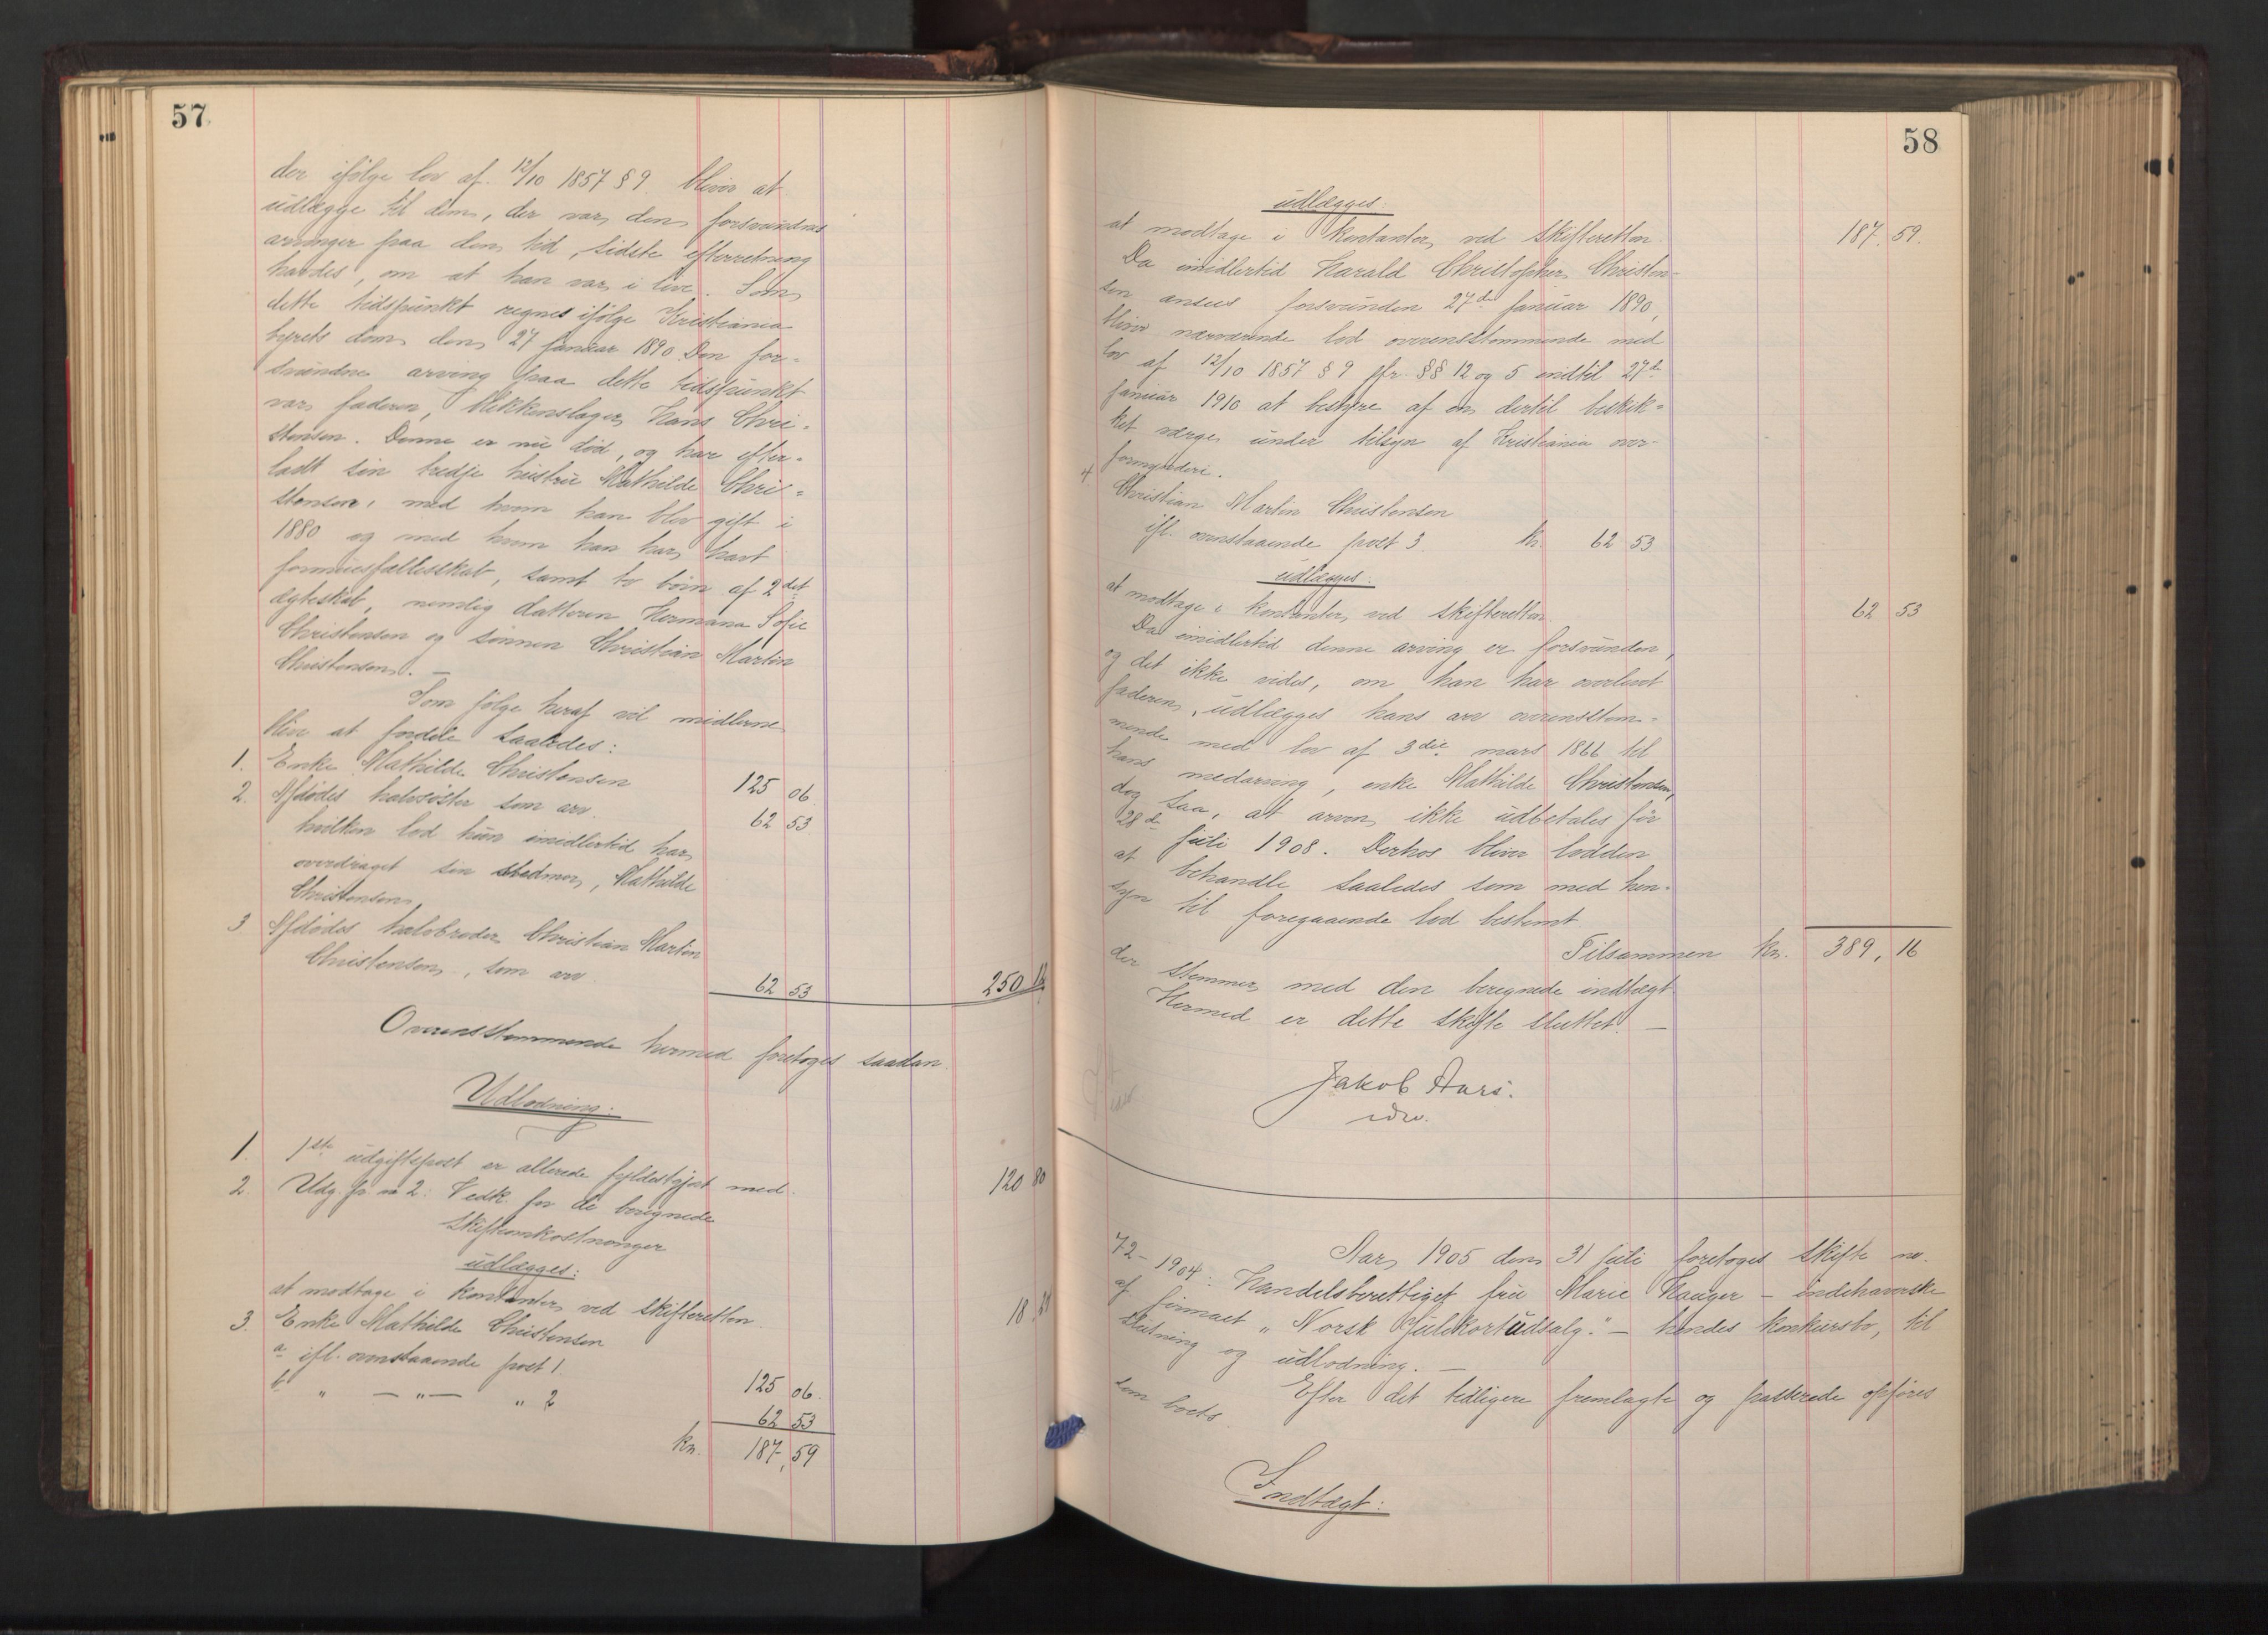 57
der ifølge lov af 12/10 1857 § 9 bliver at
udlægge til dem, der var den forsvundnes
arvinger paa den tid, sidste efterretning
havdes, om at han var i live. Som
dette tidspunkt regnes ifølge Kristiania
byrets dom den 27 januar 1890. Den for-
svundne arving paa dette tidspunkt
var faderen, blikkenslager Hans Chri-
stensen. Denne er nu død, og har efter-
ladt sin tredje hustru Mathilde Chri-
stensen, med hvem han blev gift i
1880 og med hvem han har havt
formuesfællesskab, samt to børn af 2det
ægteskab, nemlig datteren Hermana Sofie
Christensen og sønnen Christian Martin
Christensen. —
Som følge heraf vil midlerne
blive at fordele saaledes:
1. Enke Mathilde Christensen 125 06
2. Afdødes halvsøster som arv. 62 53
hvilken lod hun imidlertid har
overdraget sin stedmor, Mathilde
Christensen
3 Afdødes halvbroder Christian Martin
Christensen, som arv 62 53 250 12
Overensstemmende hermed foretoges saadan
Udlodning:
1 1ste udgiftspost er allerede fyldestgjort med 120 80
2 Udg. p. no 2: Vedk. for de beregnede
skifteomkostninger
udlægges:
at modtage i kontanter ved skifteretten. 18
3. Enke Mathilde Christensen
a ifl. ovenstaaende post 1. 125 06.
b " — " — " 2 62 53
kr. 187,59
58
udlægges:
at modtage i kontanter ved skifteretten 187. 59.
Da imidlertid Harald Christopher Christen-
sen ansees forsvunden 27de januar 1890,
bliver nærværende lod overensstemmende med
lov af 12/10 1857 § 9 jfr. §§ 12 og 5 indtil 27de
januar 1910 at bestyre af en dertil beskik-
ket værge under tilsyn af Kristiania over-
formynderi.
4 Christian Martin Christensen
ifl. ovenstaaende post 3. kr. 62 53
udlægges:
at modtage i kontanter ved skifteretten 62 53
Da imidlertid denne arving er forsvunden,
og det ikke vides, om han har overlevet
faderen, udlægges hans arv overensstem-
mende med lov af 3die mars 1866 til
hans medarving, enke Mathilde Christensen,
dog saa, at arven ikke udbetales før
28de juli 1908. Derhos bliver lodden
at behandle saaledes som med hen-
syn til foregaaende lod bestemt
Tilsammen kr. 389, 16
der stemmer med den beregnede indtægt.
Hermed er dette skifte sluttet. —
Jakob Aars.
Aar 1905 den 31 juli foretoges skifte no.
72 – 1904: Handelsberettiget frue Marie Hauger – indehaverske
af firmaet "Norsk Julekortudsalg." – hendes konkursbo, til
slutning og udlodning. —
Efter det tidligere fremlagte og passerede opføres
som boets
Indtægt: